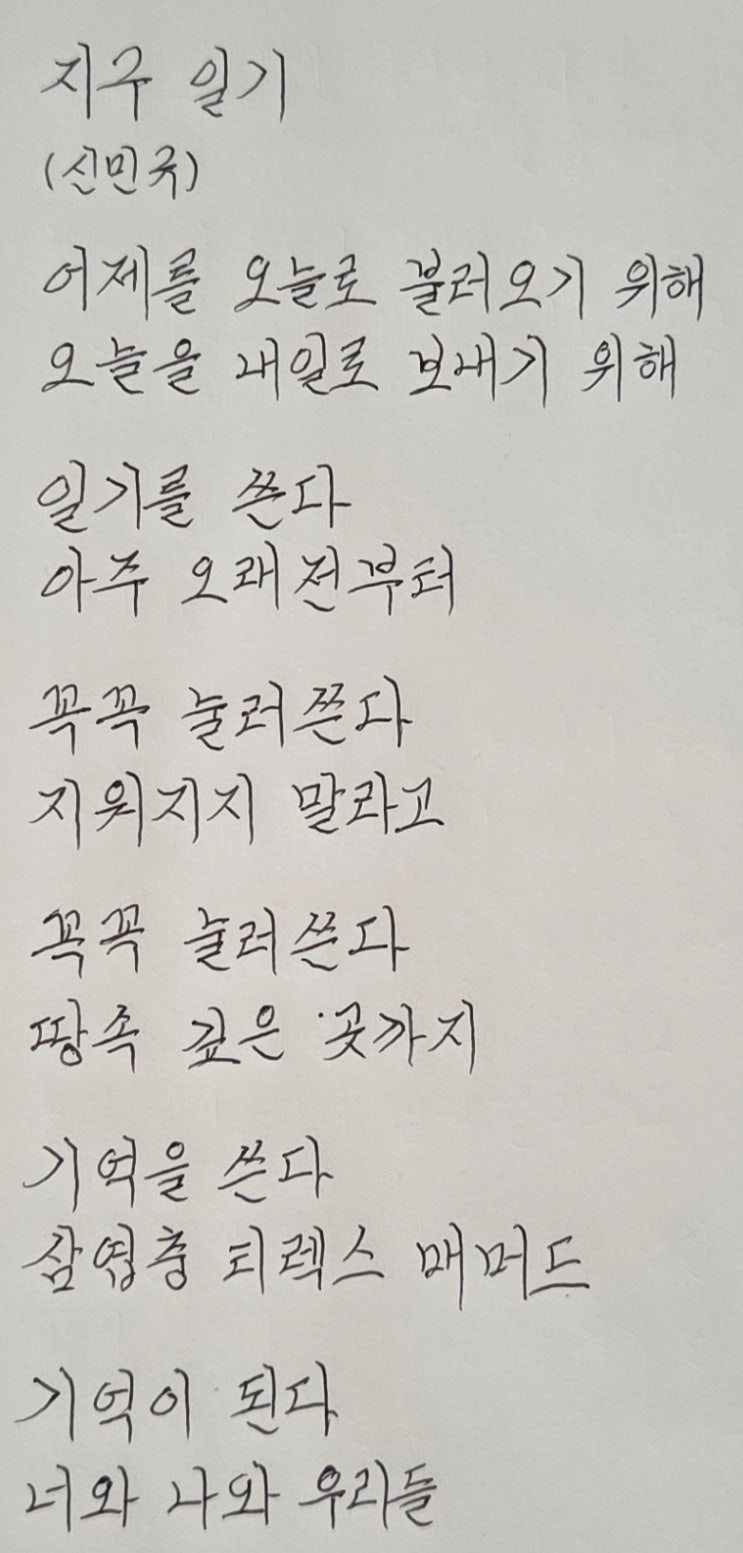 지구 일기
(신민국)
어제를 오늘로 불러오기 위해
오늘을 내일로 보내기 위해
일기를 쓴다
아주 오래전부터
꼭꼭 눌러쓴다
지워지지 말라고
꼭꼭 눌러쓴다
땅속 깊은 곳까지
기억을 쓴다
삼엽충 티렉스 매머드
기억이 된다
너와 나와 우리들